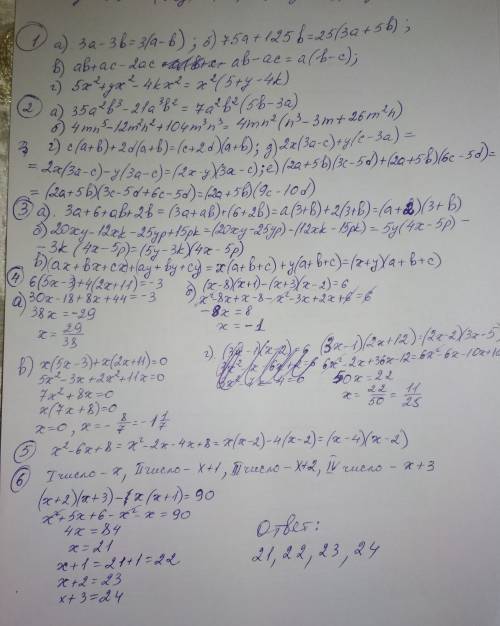 1 а) 3a-3b=3(a-b); б) 75a+125b=25(3a+5b);
в) ab+ac-2ac = ab-ac=a(b-c);
г) 5x²+yx²-4kx²=x²(5+y-4k)
2 а) 35a²b³-21a³b²=7a²b²(5b-3a)
б) 4mn⁵-12m²n²+104m³n³=4mn²(n³-3m+26m²n)
3 г) c(a+b)+2d(a+b)=(c+2d)(a+b); д) 2x(3a-c)+y(c-3a)=
=2x(3a-c)-y(3a-c)=(2x-y)(3a-c); е) (2a+5b)(3c-5d)+(2a+5b)(6c-5d)=
=(2a+5b)(3c-5d+6c-5d)=(2a+5b)(9c-10d)
3 а. 3a+6+ab+2b=(3a+ab)+(6+2b)=a(3+b)+2(3+b)=(a+2)(3+b)
б) 20xy-12xk-25yp+15pk=(20xy-25yp)-(12xk-15pk)=5y(4x-5p)-
-3k(4x-5p)=(5y-3k)(4x-5p)
в) (ax+bx+cx)+(ay+by+cy)=x(a+b+c)+y(a+b+c)=(x+y)(a+b+c)
4 а) 6(5x-3)+4(2x+11)=-3
30x-18+8x+44=-3
38x=-29
x=29/38
б) (x-8)(x+1)-(x+3)(x-2)=6
x²-8x+x-8-x²-3x+2x+6=6
-8x=8
x=-1
в) x(5x-3)+x(2x+11)=0
5x²-3x+2x²+11x=0
7x²+8x=0
x(7x+8)=0
x=0, x=-8/7=-1 1/7
г. (3x-1)(2x+12)=(2x-2)(3x-5)
6x²-2x+36x-12=6x²-6x-10x+10
50x=22
x=22/50=11/25
5 x²-6x+8=x²-2x-4x+8=x(x-2)-4(x-2)=(x-4)(x-2)
6 I число-x, II число-x+1, III число-x+2, IV число-x+3
(x+2)(x+3)-x(x+1)=90
x²+5x+6-x²-x=90
4x=84
x=21
x+1=21+1=22
x+2=23
x+3=24
Ответ:
21, 22, 23, 24